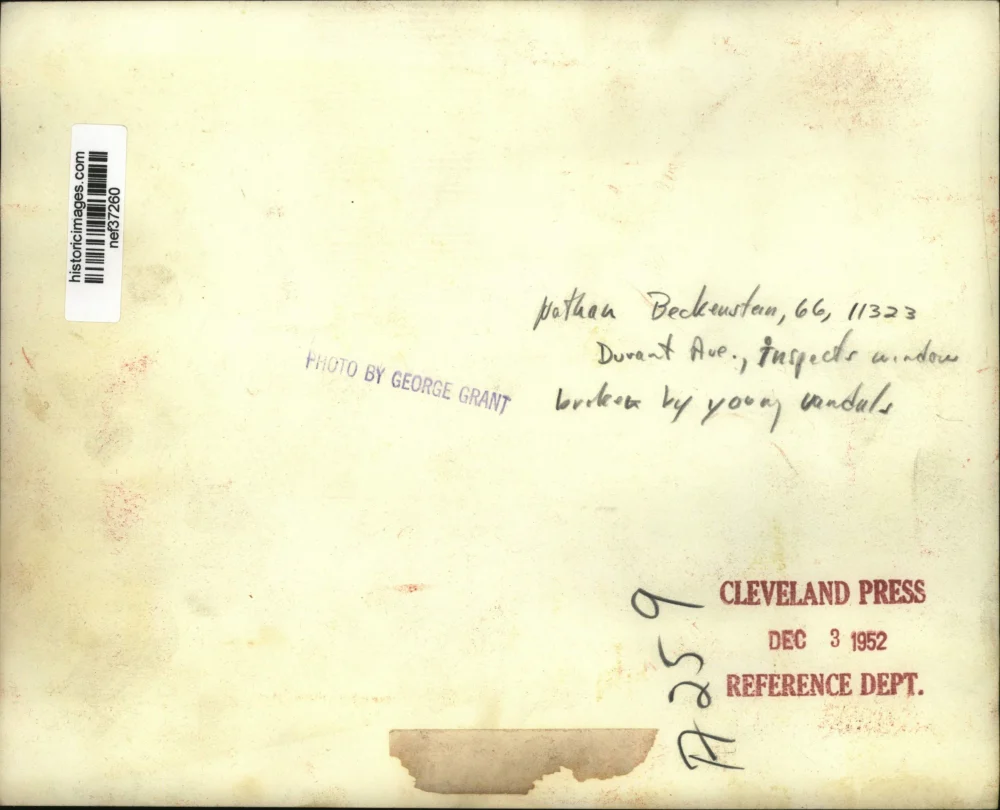 historicimages.com
nef37260
Nathan Beckenstein, 66, 11323
Durant Ave., inspects window
broken by young vandals
PHOTO BY GEORGE GRANT
CLEVELAND PRESS
DEC 3 1952
REFERENCE DEPT.
A259